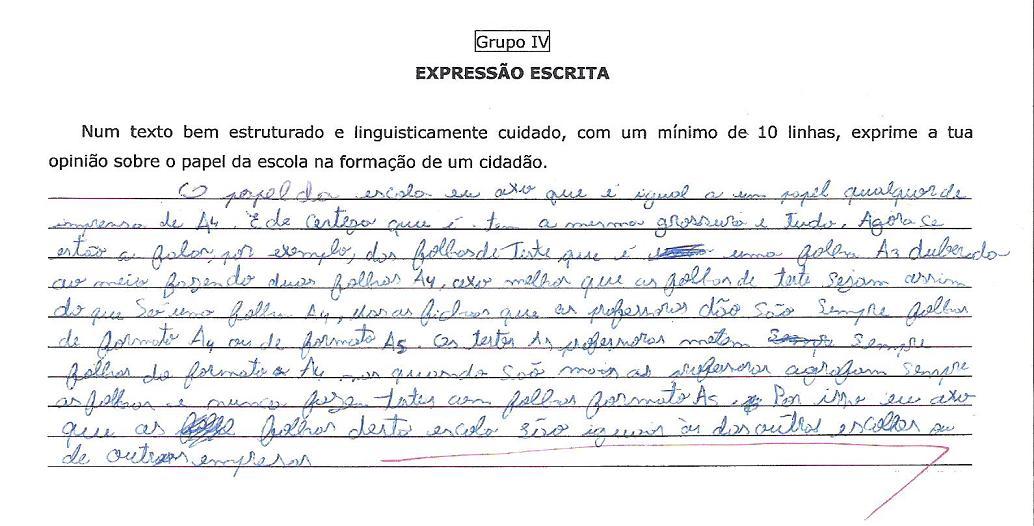 Grupo IV
EXPRESSÃO ESCRITA
Num texto bem estruturado e linguisticamente cuidado, com um mínimo de 10 linhas, exprime a tua
opinião sobre o papel da escola na formação de um cidadão.
O papel da escola eu axo que é igual a um papel qualquer de
imprensa de A4. E de certeza que é. Tem a mesma grossura e tudo. Agora se
estão a falar, por exemplo, das folhas de Teste que é uma folha A3 duberada
ao meio fazendo duas folhas A4, axo melhor que as folhas de teste sejam assim
do que Ser uma folha A4, Mas as fichas que as professoras dão São Sempre folhas
de formato A4 ou de formato A5. Os testes As professoras metem Sempre
folhas do formato A4 quando São as professoras agrafam Sempre
as folhas e nunca fazem testes com folhas formato A5. Por isso eu axo
que as folhas desta escola são iguais às das outras escolas ou
de outras empresas